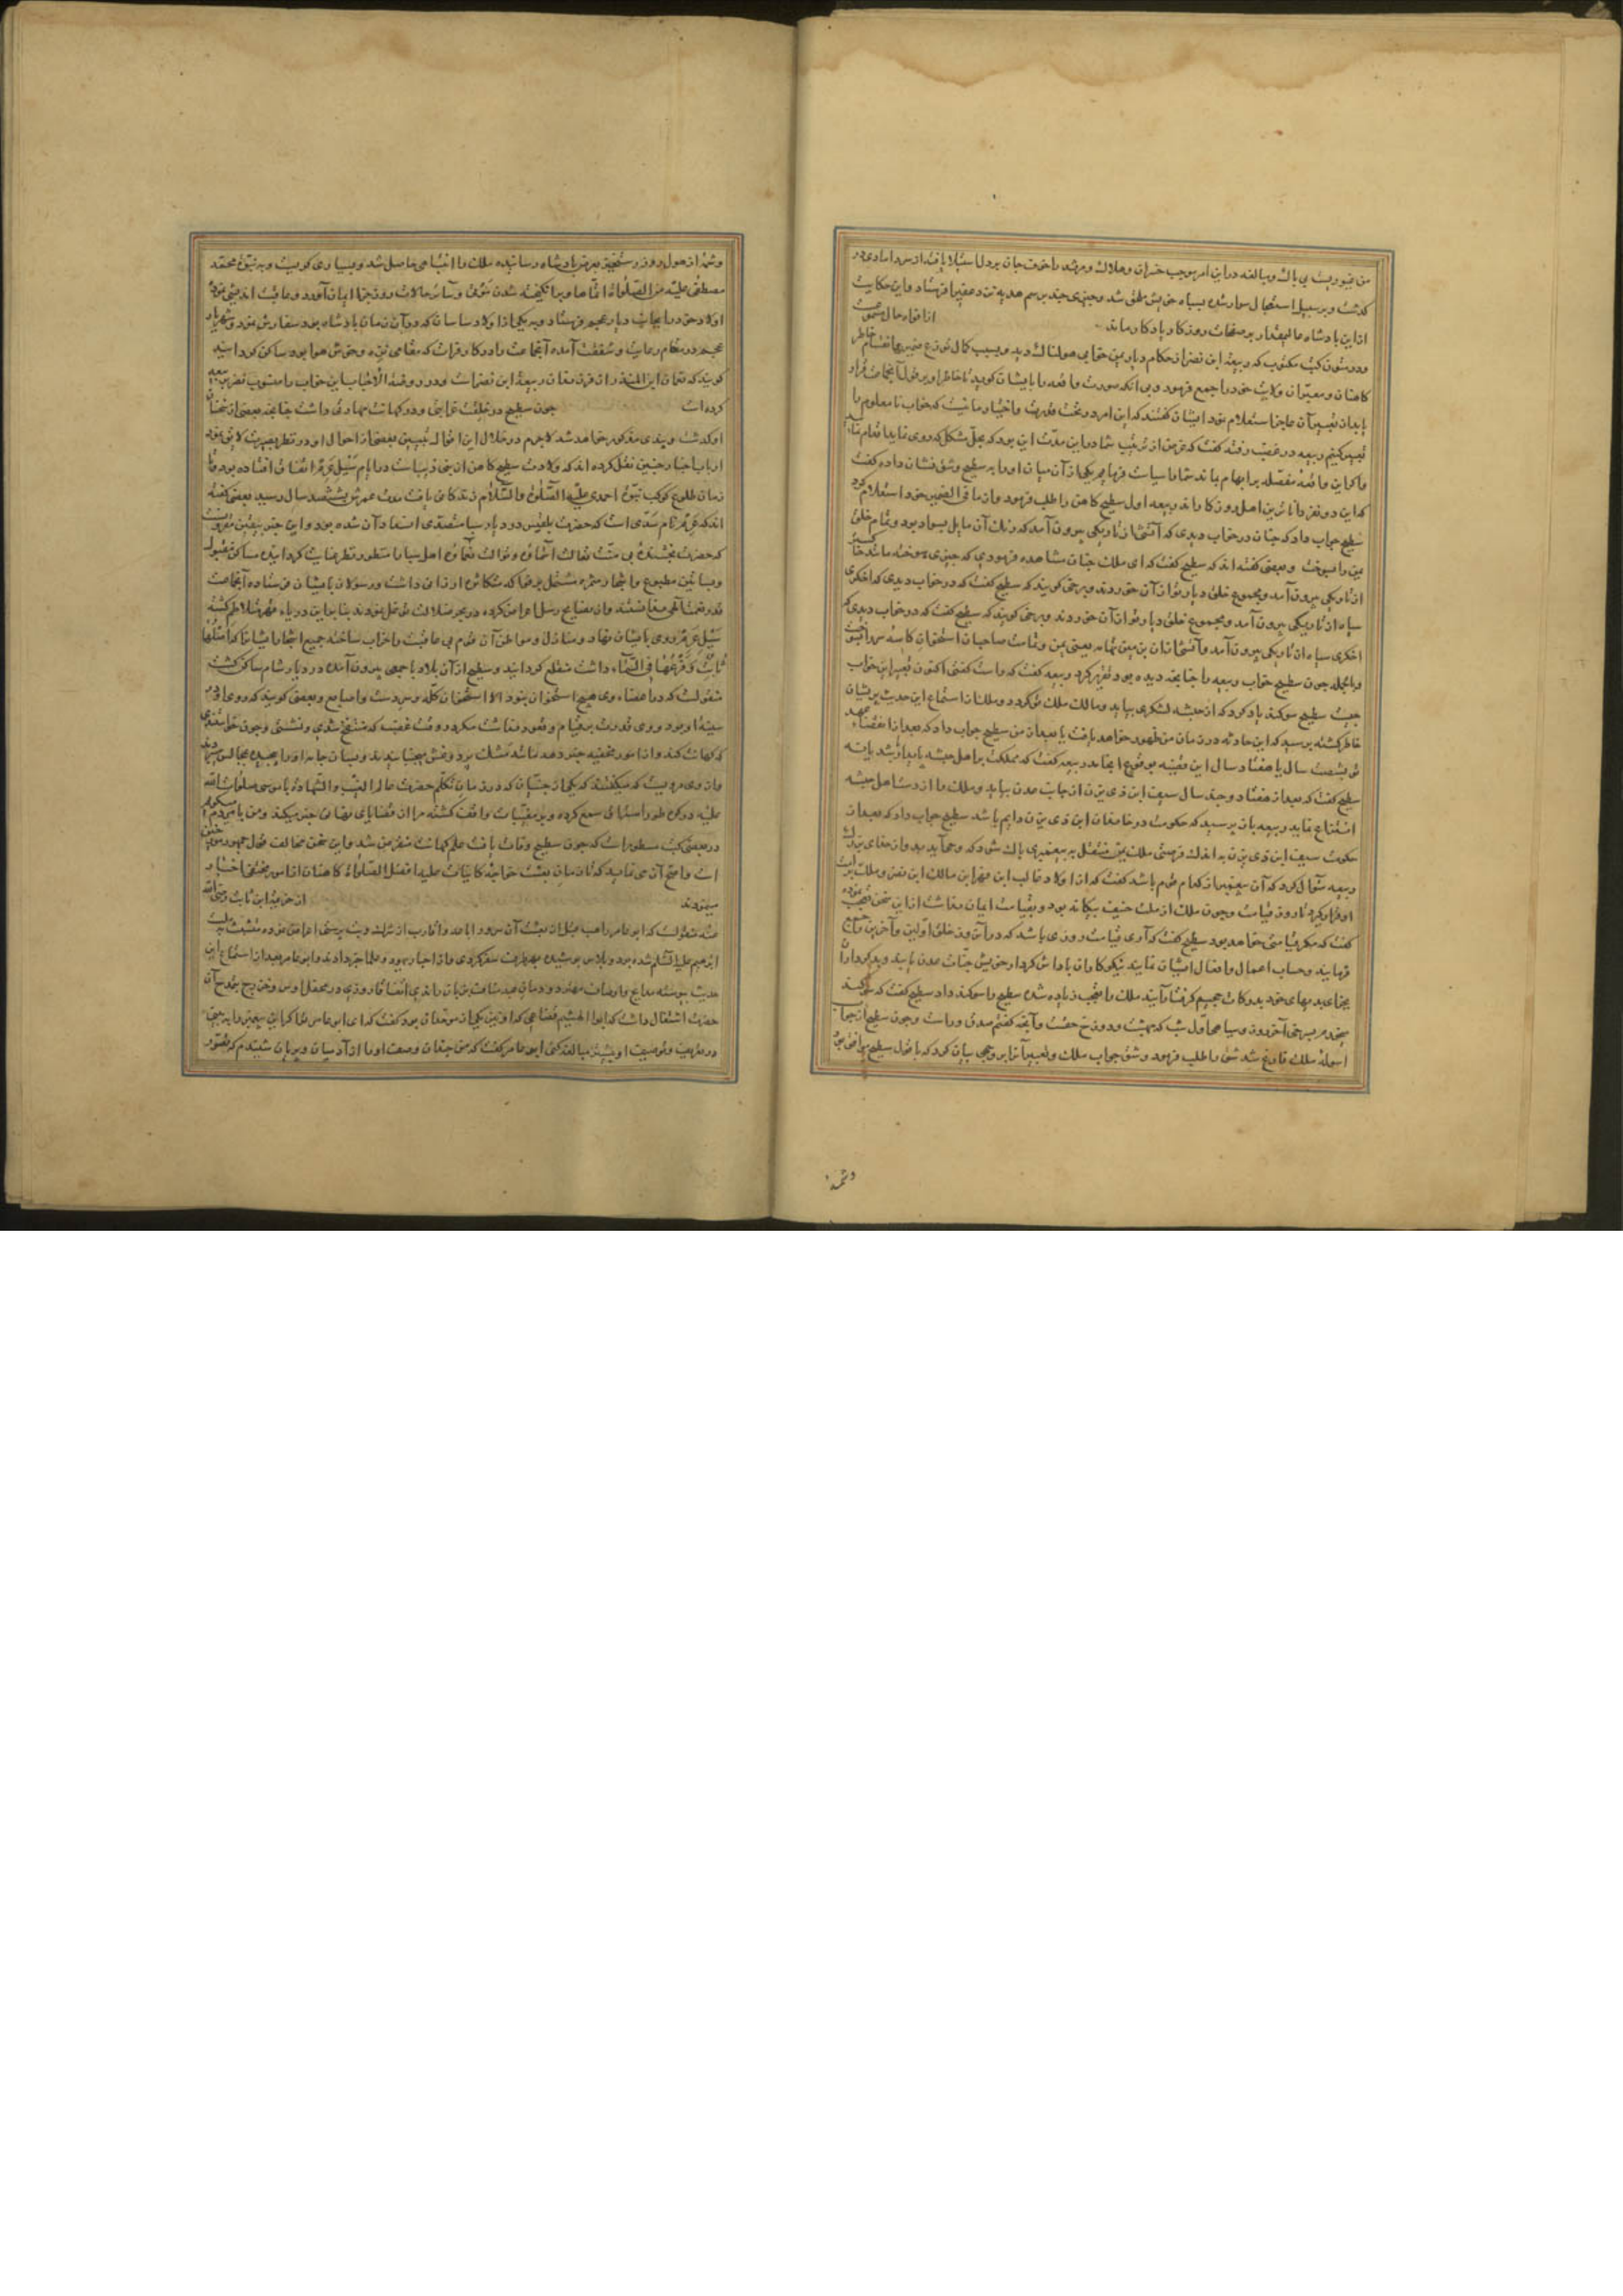 من غیور نیست بی باک و مبالغه در این امر موجب خسران و هلاک
گذشت و بر سبیل استعجال سوار شده بسپاه خویش ملحق شد و چیزی چند برسم هدیه نزد فرستاد و این حکایت
ازان پادشاه عالیمقدار بر صفحات روزگار یادگار ماند
و در متون کتب مکتوب که ربیعه ابن نضر از حکام دیار یمن خوابی هولناک دید و بسبب کمال توزع ضمیر
کاهنان و معبران ولایت خود را جمع فرمود و بی آنکه صورت واقعه را با ایشان گوید
ایشان گفتند که این امر در تحت قدرت و اختیار ما نیست که خواب نامعلوم را
تعبیر کنیم ربیعه در غضب رفته گفت که غرض از تربیت شما در این مدت این بود که بحل مشکل که روی نماید
واگر این واقعه مفصله بر ابهام بماند شما را سیاست فرمایم یکی از آن میان او را به سطیح و شق نشان داده گفت
که این دو نفر داناترین اهل روزگاراند ربیعه اول سطیح کاهن را طلب فرمود و از ما فی الضمیر خود استعلام کرد
سطیح جواب داد که چنان در خواب دیدی که آتشی از تاریکی بیرون آمد که رنگ آن مایل بسواد بود و تمام خلق
یمن را بسوخت و بعضی گفته اند که سطیح گفت که ای ملک چنان مشاهده فرمودی که چیزی سوخته مانند
از تاریکی بیرون آمد و مجموع خلق دیار تو از آن خوردند و برخی گویند که سطیح گفت که در خواب دیدی که اخگری
سیاه از تاریکی بیرون آمد و مجموع خلق دیار تو از آن خوردند و برخی گویند که سطیح گفت که در خواب دیدی که
اخگری سیاه از تاریکی بیرون آمد
و بالجمله چون سطیح خواب ربیعه را چنانچه دیده بود تقریر کرد ربیعه گفت که راست گفتی اکنون تعبیر این خواب
چیست سطیح سوگند یاد کرد که از حبشه لشکری بیاید و مالک ملک تو گردد و ملک از استماع این حدیث پریشان
خاطر گشته پرسید که این حادثه در زمان من ظهور خواهد یافت یا بعد از من سطیح جواب داد که بعد از انقضاء
تو بشصت سال یا هفتاد سال این قضیه بوقوع انجامد ربیعه گفت که مملکت بر اهل حبشه پاینده باشد یا نه
سطیح گفت که بعد از هفتاد و چند سال سیف ابن ذی یزن از جانب عدن بیاید و ملک را از دست اهل حبشه
انتزاع نماید ربیعه باز پرسید که حکومت در خاندان ابن ذی یزن دایم باشد سطیح جواب داد که بعد از
حکومت سیف ابن ذی یزن به اندک فرصتی ملک یمن منتقل به پیغمبری پاک شود که وحی آید بدو از خدای بزرگ
ربیعه سؤال کرد که آن پیغمبر از کدام قوم باشد گفت که از اولاد غالب ابن فهر ابن مالک ابن نضر و ملک
او قرار گیرد تا روز قیامت و چون ملک از ملت حنیف بیگانه بود و بقیامت ایمان نداشت از این سخن تعجب نموده
گفت که مگر قیامتی خواهد بود سطیح گفت که آری قیامت روزی باشد که در آن روز خلق اولین و آخرین
فرمایند و حساب اعمال و افعال ایشان نمایند نیکوکاران پاداش کردار خویش جنات عدن یابند و بدکرداران
بجزای بدیهای خود بدرکات جحیم گرفتار آیند ملک را تعجب زیاده شده سطیح را سوگند داد سطیح گفت که
آخر روز و سیاهی اول شب که بهشت و دوزخ حقست و آنچه گفتم صدق و راست و چون سطیح از جواب
اسوله ملک فارغ شد شق را طلب فرمود و شق جواب ملک و تعبیر آنرا بر وجهی بیان کرد که با قول سطیح موافق بود
و شمه
و شمه از هول روز رستخیز بعرض پادشاه رسانیده ملک را انتباهی حاصل شد و بسیاری گریست و به نبوت محمد
مصطفی علیه من الصلوات
اولاد خود را بجانب دیار عجم فرستاد و به یکی از اولاد ساسان که در آن زمان پادشاه بود سفارش نمود و شهریار
عجم در مقام رعایت و شفقت آمده آن جماعت را در کنار فرات که مقامی نزه و خوش هوا بود ساکن گردانید
گویند که نعمان ابن المنذر از فرزندان ربیعه ابن نضر است و در روضة الاحباب این خواب را منسوب بنضر بن ربیعه
کرده است چون سطیح در خلقت غرابتی و در کهانت مهارتی داشت چنانچه بعضی از سخنان
او گذشت و چندی مذکور خواهد شد لاجرم در خلال این اقوال تبیین بعضی از احوال او در نظر بصیرت لایق نمود
ارباب اخبار چنین نقل کرده اند که ولادت سطیح کاهن از بنی ذیب است در ایام سیل عرم اتفاق افتاده بود و تا
زمان طلوع کوکب نبوت احمدی علیه الصلوة والسلام زندگانی یافت مدت عمرش بششصد سال رسید بعضی گفته
اند که عرم نام سدی است که حضرت بلقیس در دیار سبا متصدی استعداد آن شده بود
که حضرت بخشنده بی منت تعالت آلاؤه و توالت نعماؤه اهل سبا را منظور نظر عنایت گردانیده مساکن
و بساتین مطبوع و اشجار مثمره ارزانی داشت و رسولان بایشان فرستاده آن جماعت
قدر نعمت الهی نشناختند و از نصایح رسل اعراض کرده در بحر ضلالت متوغل بودند بنابراین دریاء قهر متلاطم گشته
سیل عرم روی بایشان نهاد و منازل و مواطن آن قوم بی عاقبت را خراب ساخته جمیع اشجار ایشان را که اصلها
ثابت و فرعها فی السماء داشت منقلع گردانید و سطیح از آن بلاد با جمعی بیرون آمده در دیار شام ساکن گشت
منقولست که در اعضاء وی هیچ استخوان نبود الا استخوان کله و سر دست و اصابع و بعضی گویند که روی او در
سینه او بود و وی قدرت بر قیام و قعود نداشت مگر در وقت غضب که منتفخ شدی و نشستی و چون خواستندی
که کهانت کند و از امور مخفیه خبر دهد مانند مشک پر دوغش بجنبانیدند و بسان جامه او را پیچیده بمجالس
و از وی مرویست که میگفته که یکی از جنیان که در زمان تکلم حضرت عالم الغیب والشهادة با موسی صلوات الله
علیه در کوه طور استماع سمع کرده و بر مغیبات واقف گشته مرا از قضایای نهانی خبر میکند و من با مردم میگویم
در بعضی کتب مسطور است که چون سطیح وفات یافت علم کهانت منقرض شد و این سخن مخالف قول جمهور مورخین
است و اصح آن می نماید که تا زمان بعثت خواجه کاینات علیه افضل الصلوات کاهنان از امور مخفی اخبار
مینمودند از خزیمة ابن ثابت رضی الله
عنه منقولست که ابو عامر راهب قبل از بعثت آن سرور اباعد و اقارب از شرک و بت پرستی اعراض نموده
ابراهیم علیه السلام شده بود و پلاس پوشیده بهر طرف سفر کردی و از احبار یهود و علما خبر دادند و ابو عامر بعد از استماع این
حدیث پیوسته مدایح و اوصاف مهتر دو جهان بر زبان راندی اتفاقا روزی در محفل اوس و خزرج بمدح آن
حضرت اشتغال داشت که ابو الهیثم قضاعی که او نیز یکی از موحدان بود گفت که ای ابو عامر
در تعریف و توصیف او بیشتر مبالغه کنی ابو عامر گفت که من چندان وصف او را از آدمیان و پریان شنیدم که تصور